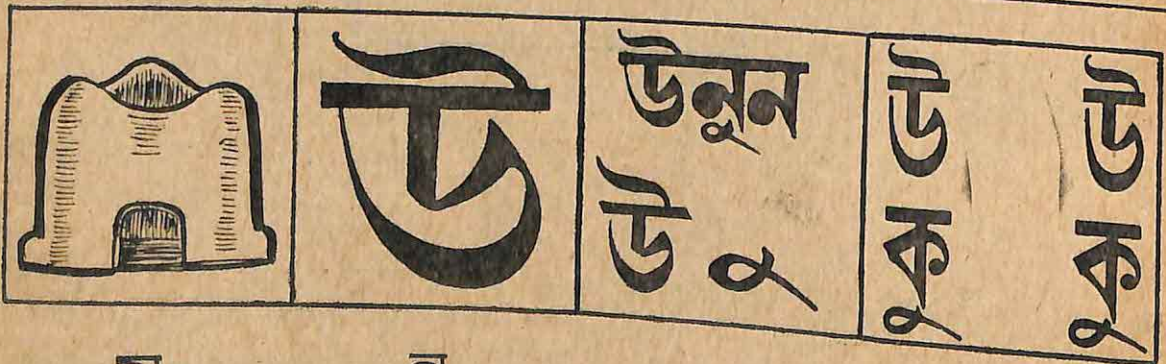 উ
উনুন
উ ু
উ উ
কু কু